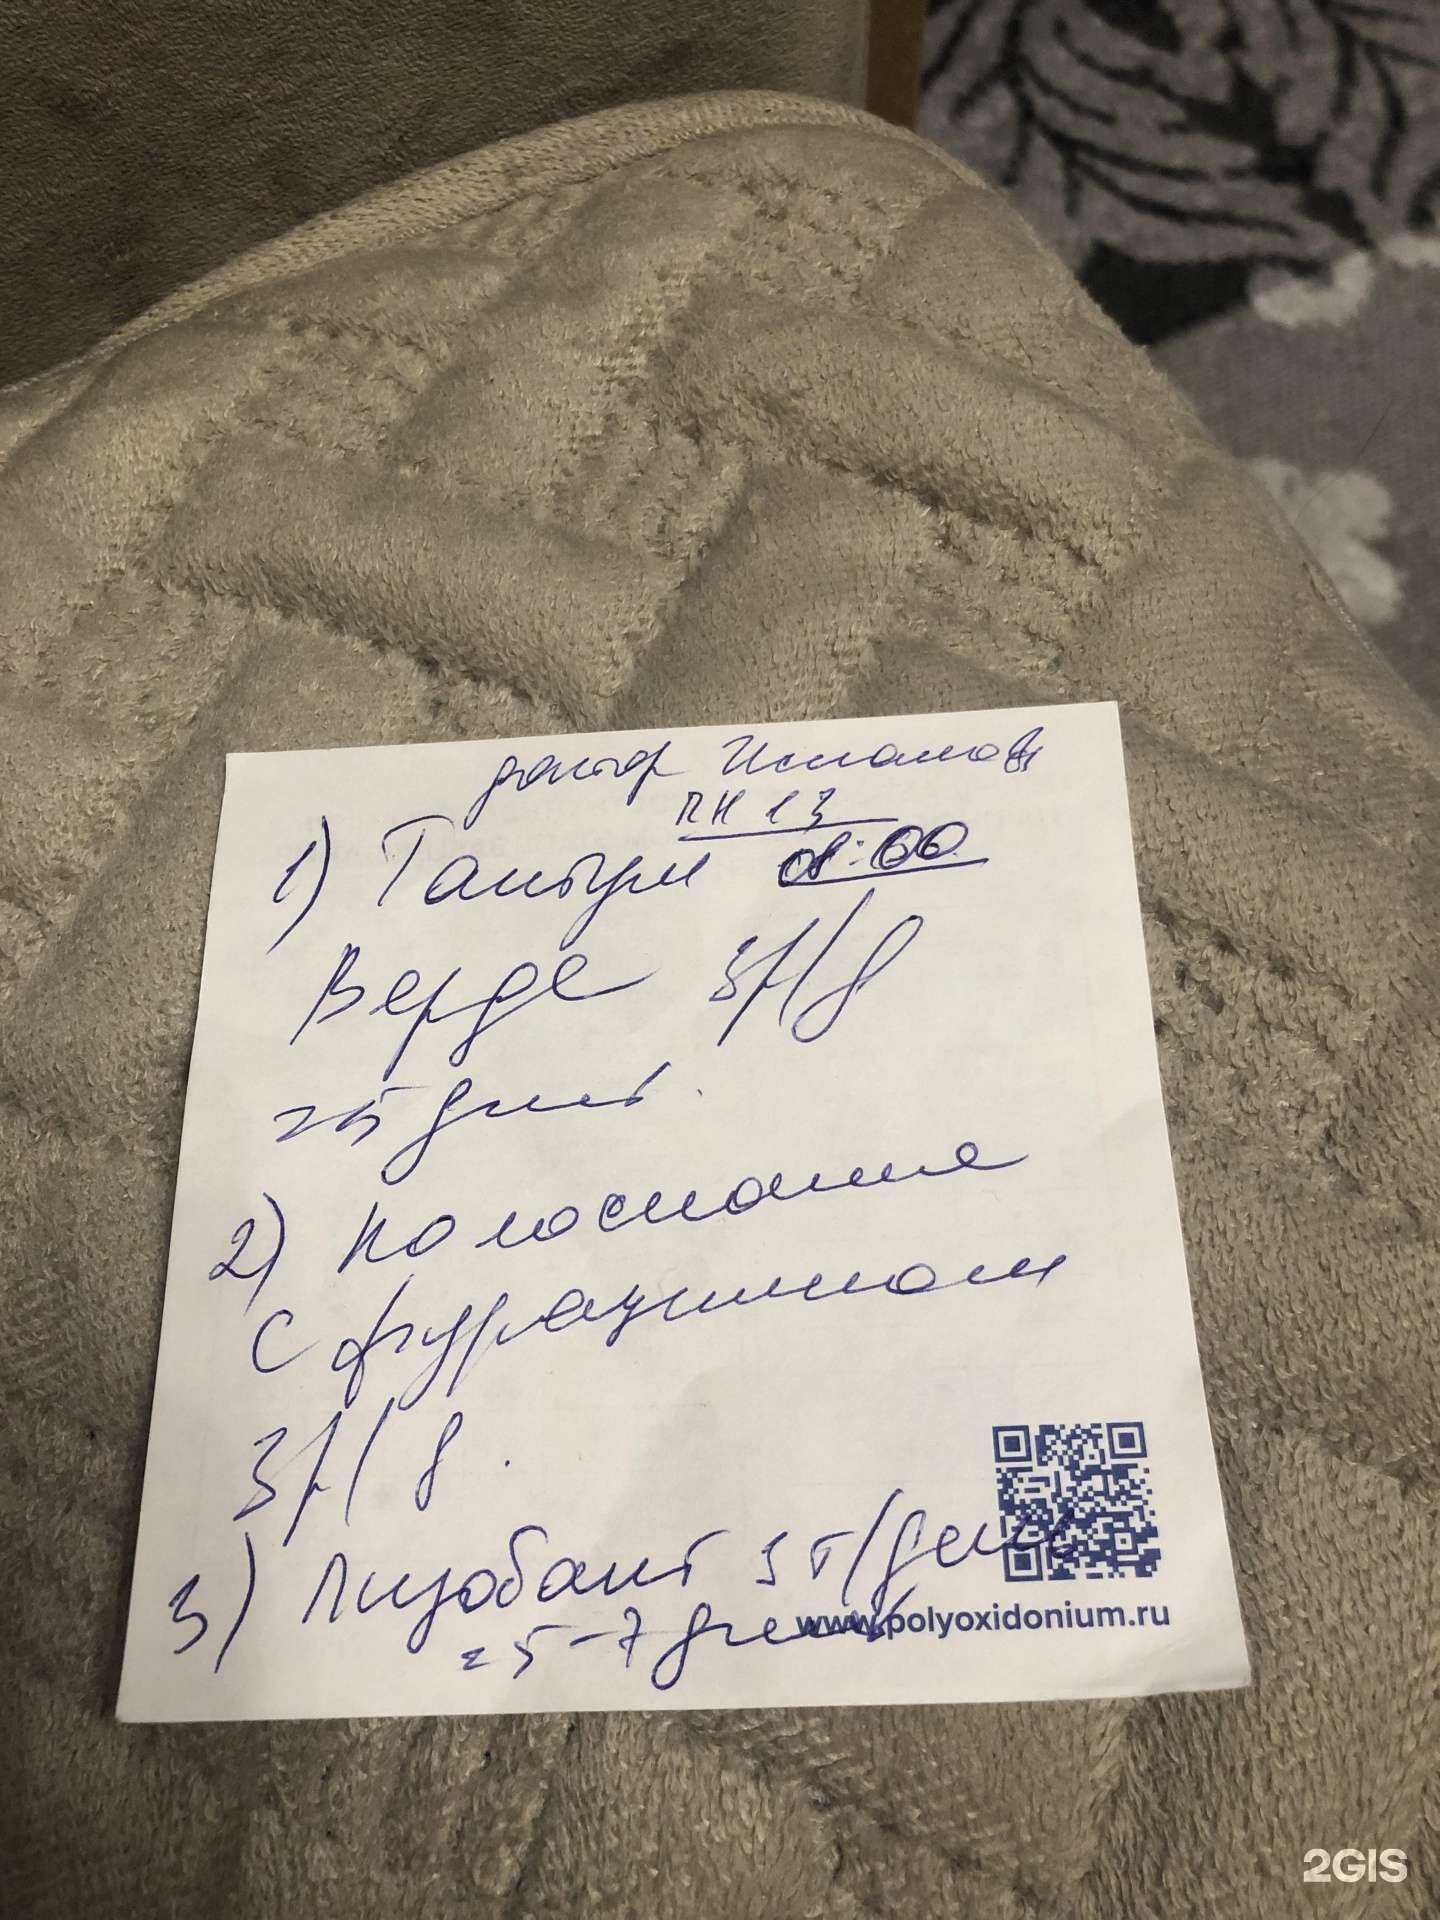 доктор Исламов
пн 13
8:00
1) Тантум
Верде 3р/д
=5 дней.
2) Полоскание
с фурацилином
3р/д.
3) Лизобакт 3т/день
=5-7 дней
www.polyoxidonium.ru
2GIS